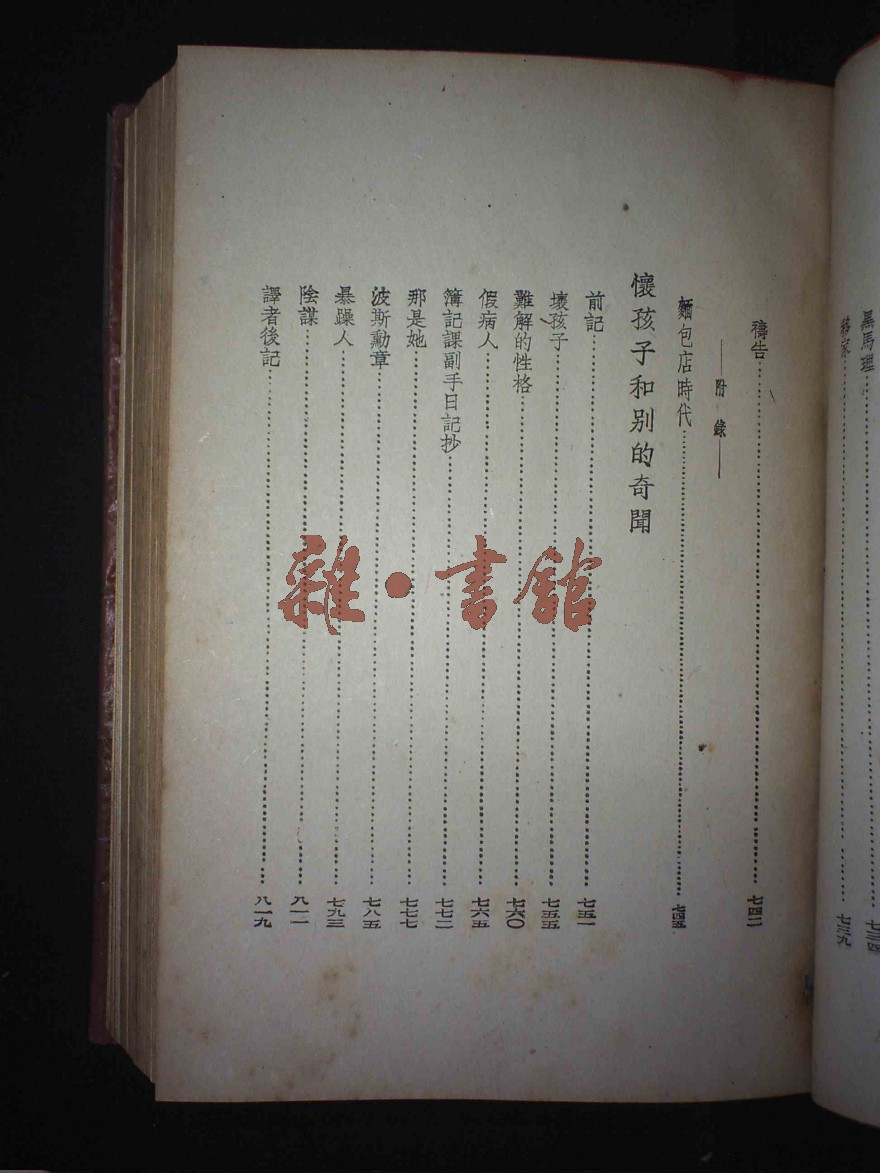 黑馬理……………七三四
移家……………七三九
禱告……………七四二
——附 錄——
麵包店時代……………七四五
懷孩子和別的奇聞
前記……………七五一
壞孩子……………七五五
難解的性格……………七六〇
假病人……………七六五
簿記課副手日記抄……………七七二
那是她……………七七七
波斯勳章……………七八五
暴躁人……………七九三
陰謀……………八一一
譯者後記……………八一九
雜·書館